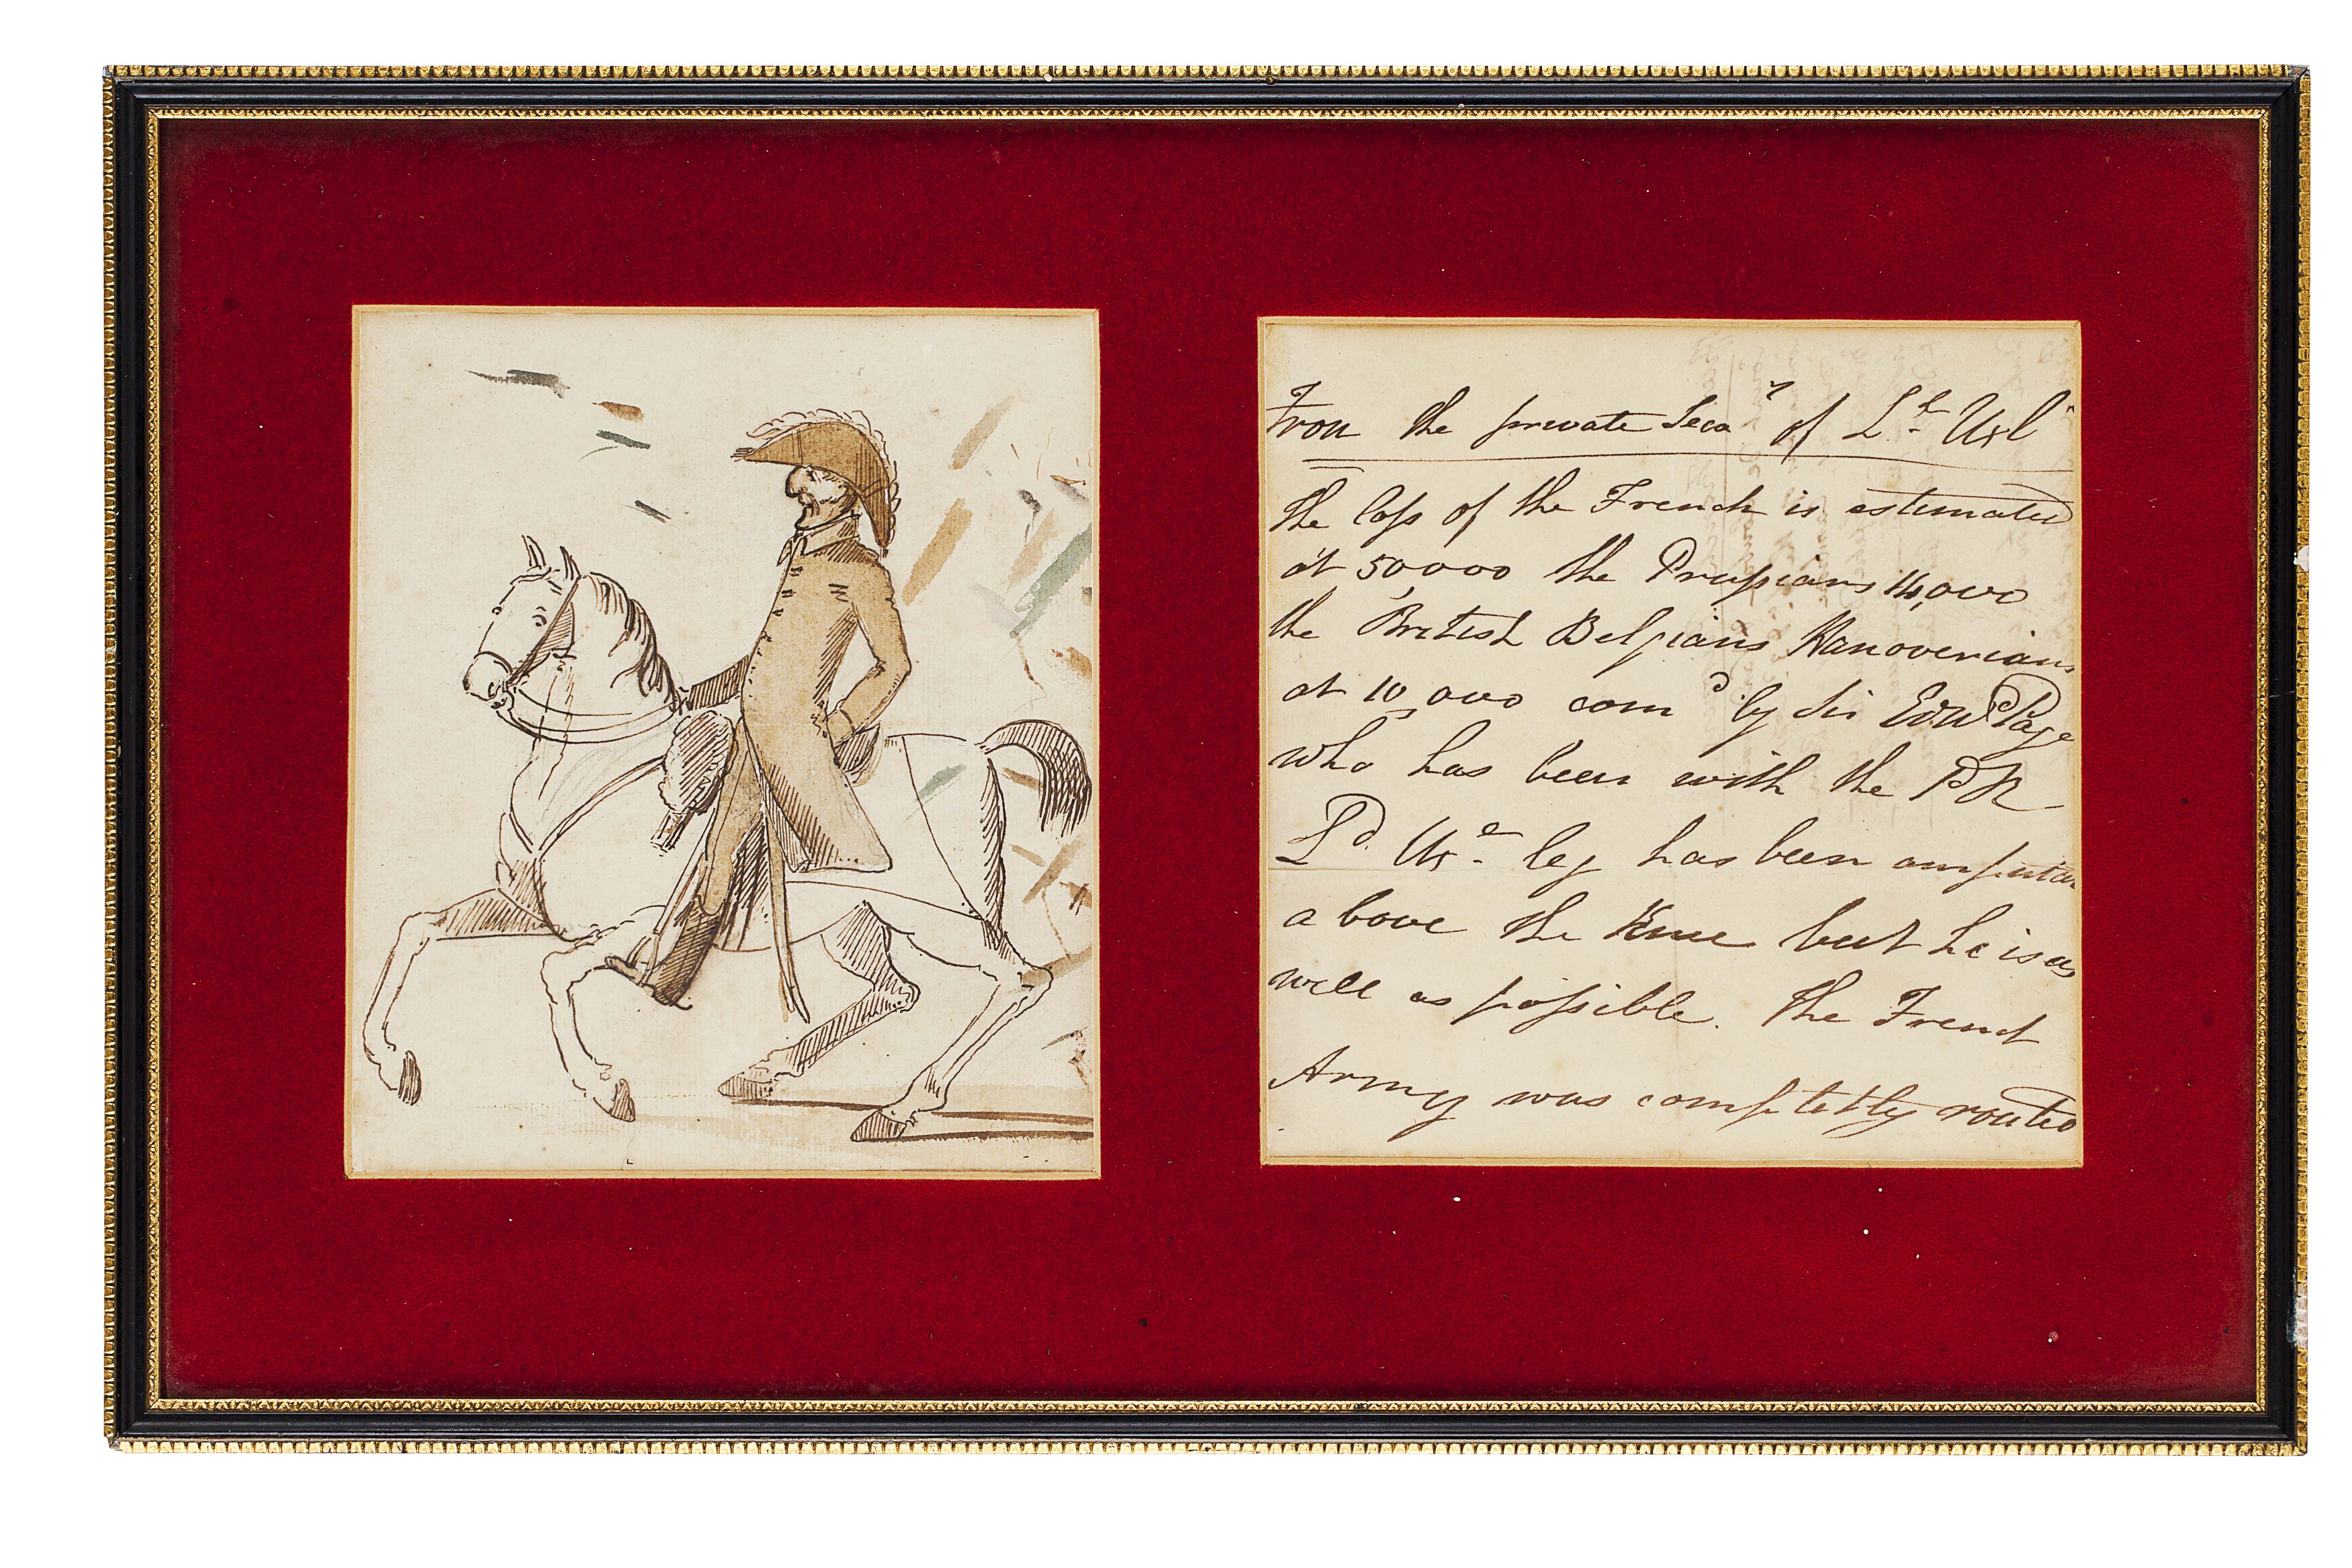 From the private Secʸ of Lᵈ Uxᵉ
the loss of the French is estimated
at 50,000 the Prussians 14,000
the British Belgians Hanoverians
at 10,000 comᵈ by Sir Edwᵈ Page
who has been with the PR
Lᵈ. Uxᵉ leg has been amputa
above the Knee but he is as
well as possible. The French
Army was completely routed